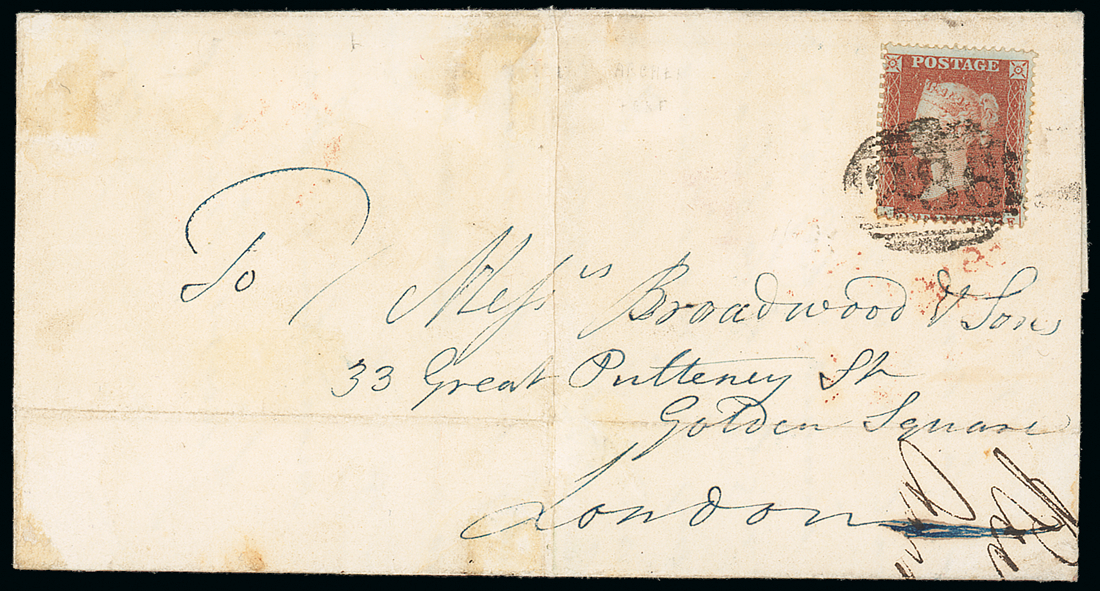 POSTAGE
To / Messrs Broadwood & Sons
33 Great Pulteney St
Golden Square
London